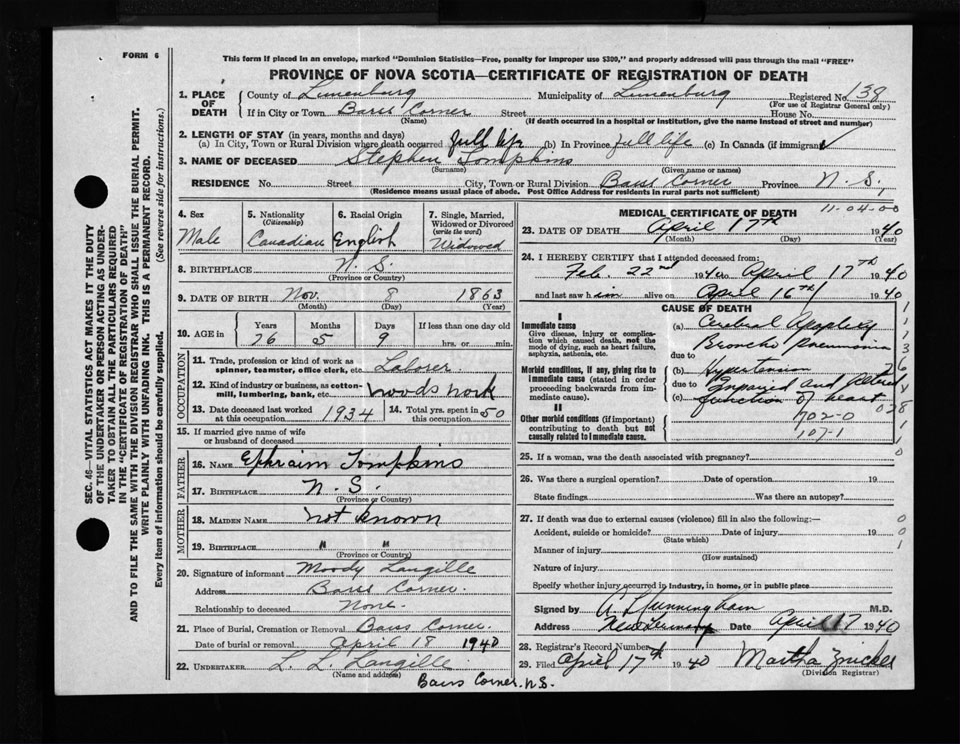 FORM 6
This form if placed in an envelope, marked "Dominion Statistics—Free, penalty for improper use $300," and properly addressed will pass through the mail "FREE"
PROVINCE OF NOVA SCOTIA—CERTIFICATE OF REGISTRATION OF DEATH
1. PLACE OF DEATH County of Lunenburg Municipality of Lunenburg Registered No. 138
(For use of Registrar General only)
If in City or Town Barss Corner Street House No.
(Name) (If death occurred in a hospital or institution, give the name instead of street and number)
2. LENGTH OF STAY (in years, months and days)
(a) In City, Town or Rural Division where death occurred full life (b) In Province full life (c) In Canada (if immigrant)
3. NAME OF DECEASED Stephen Tompkins
(Surname) (Given name or names)
RESIDENCE No. Street City, Town or Rural Division Barss Corner Province N. S.,
(Residence means usual place of abode. Post Office Address for residents in rural parts not sufficient)
4. Sex Male
5. Nationality (Citizenship) Canadian
6. Racial Origin English
7. Single, Married, Widowed or Divorced (write the word) Widowed
8. BIRTHPLACE N. S.
(Province or Country)
9. DATE OF BIRTH Nov. 8 1863
(Month) (Day) (Year)
10. AGE in Years Months Days If less than one day old
76 5 9 hrs. or min.
OCCUPATION
11. Trade, profession or kind of work as spinner, teamster, office clerk, etc. Laborer
12. Kind of industry or business, as cotton-mill, lumbering, bank, etc. Woods work
13. Date deceased last worked at this occupation 1934 14. Total yrs. spent in this occupation 50
15. If married give name of wife or husband of deceased
FATHER
16. NAME Ephraim Tompkins
17. BIRTHPLACE N. S.
(Province or Country)
MOTHER
18. MAIDEN NAME not known
19. BIRTHPLACE " "
(Province or Country)
20. Signature of informant Moody Langille
Address Barss Corner.
Relationship to deceased None.
21. Place of Burial, Cremation or Removal Barss Corner.
Date of burial or removal April 18 1940
22. UNDERTAKER L. L. Langille
(Name and address)
Barss Corner. N.S.
MEDICAL CERTIFICATE OF DEATH 11-04-00
23. DATE OF DEATH April 17th 1940
(Month) (Day) (Year)
24. I HEREBY CERTIFY that I attended deceased from:
Feb. 22nd 1940 to April 17th 1940
and last saw him alive on April 16th 1940
CAUSE OF DEATH
I
Immediate cause
Give disease, injury or complication which caused death, not the mode of dying, such as heart failure, asphyxia, asthenia, etc.
(a) Cerebral Apoplexy
Broncho Pneumonia
due to
Morbid conditions, if any, giving rise to immediate cause (stated in order proceeding backwards from immediate cause).
(b) Hypertension
due to Impaired and altered
(c) function of heart
II
Other morbid conditions (if important) contributing to death but not causally related to immediate cause.
702-0
107-1
25. If a woman, was the death associated with pregnancy?
26. Was there a surgical operation? Date of operation 19
State findings Was there an autopsy?
27. If death was due to external causes (violence) fill in also the following:—
Accident, suicide or homicide? Date of injury 19
(State which)
Manner of injury
(How sustained)
Nature of injury
Specify whether injury occurred in industry, in home, or in public place
Signed by A L Cunningham M.D.
Address New Germany Date April 17 1940
28. Registrar's Record Number
29. Filed April 17th 1940 Martha
(Division Registrar)
SEC. 46—VITAL STATISTICS ACT MAKES IT THE DUTY
OF THE UNDERTAKER OR PERSON ACTING AS UNDERTAKER
TO OBTAIN ALL THE PARTICULARS REQUIRED
IN THE "CERTIFICATE OF REGISTRATION OF DEATH"
AND TO FILE THE SAME WITH THE DIVISION REGISTRAR WHO SHALL ISSUE THE BURIAL PERMIT.
WRITE PLAINLY WITH UNFADING INK. THIS IS A PERMANENT RECORD.
Every item of information should be carefully supplied. (See reverse side for instructions.)